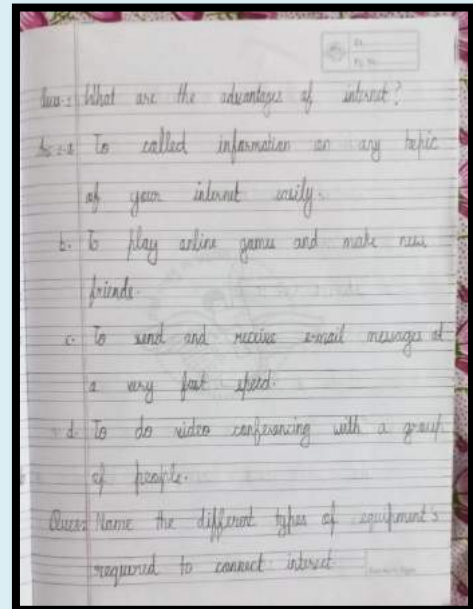 Ques-1 What are the advantages of internet?
Ans:-a To called information on any topic
of your internet easily.
b. To play online games and make new
friends.
c. To send and receive e-mail messages at
a very fast speed.
d. To do video conferencing with a group
of people.
Ques2 Name the different types of equipment's
required to connect internet.